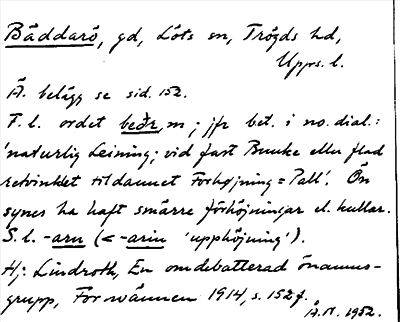 Bäddarö, gd, Löts sn, Trögds hd,
Upps. l.
Ä. belägg se sid. 152.
F. l. ordet beðr, m; jfr bet. i no. dial.:
'naturlig Leining; vid fast Bunke eller flad
retvinklet tildannet Forhøjning = Pall'. Ön
synes ha haft smärre förhöjningar el. kullar.
S. l. -arn (< -arin 'upphöjning').
Hj: Lindroth, En omdebatterad önamns-
grupp, Fornvännen 1914, s. 152 f.
Å.N. 1952.